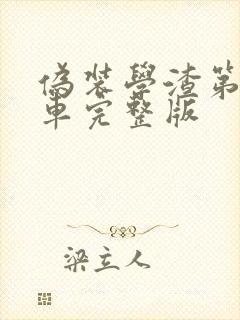 偽裝學渣第
車完整版
梁立人